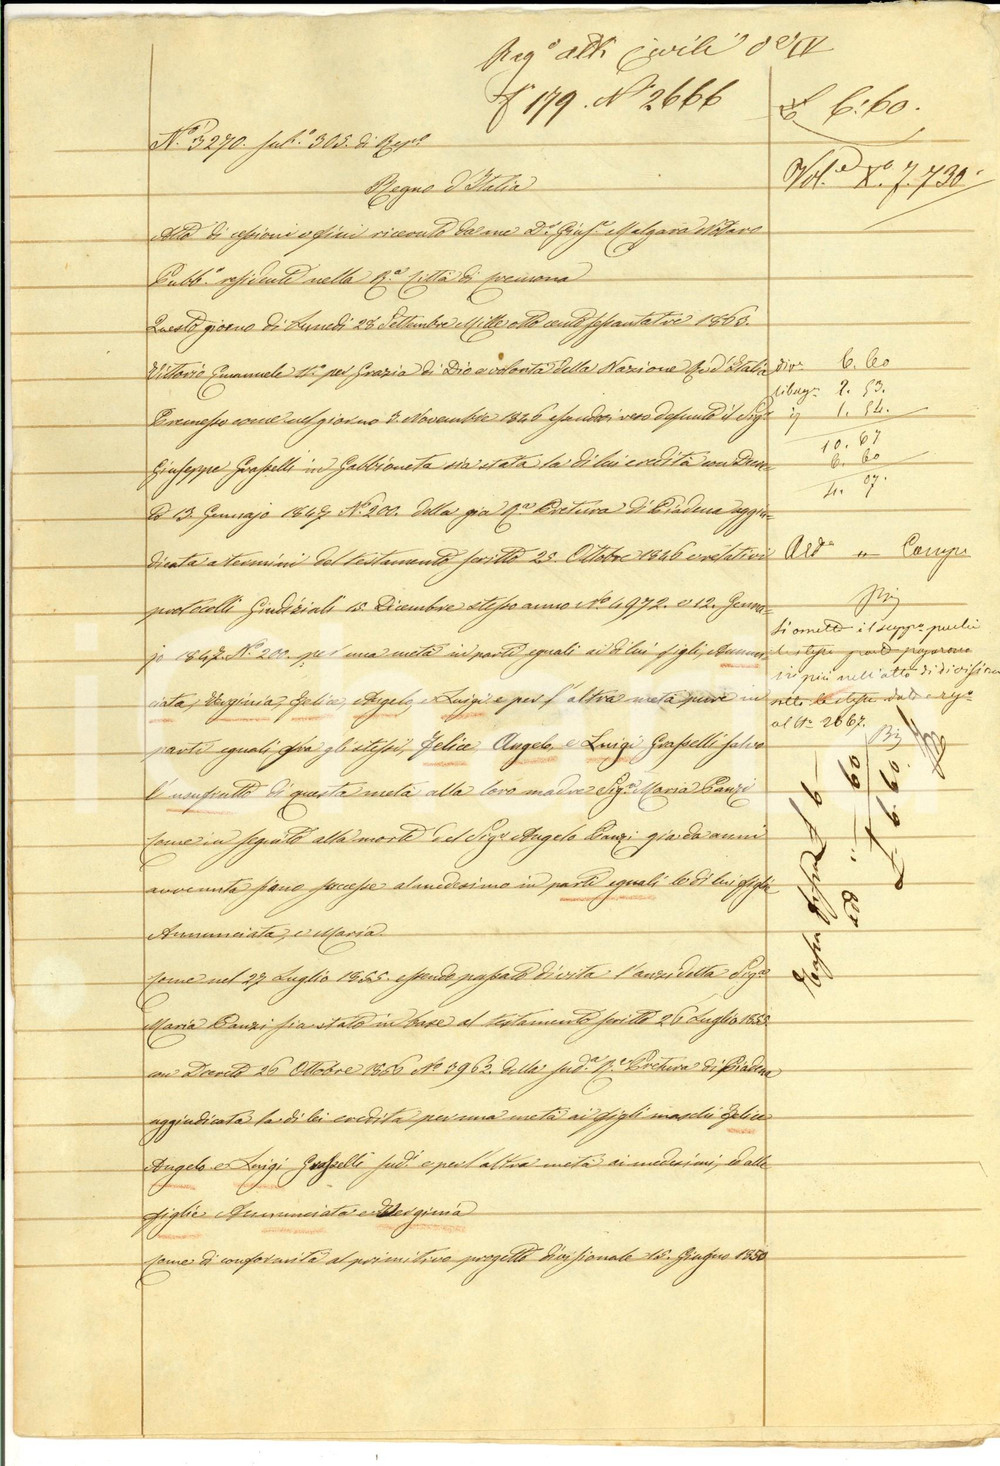 Reg.° atti Civili
f° 179. N° 2666
£ 6:60.
N.° 3270. sub.° 305. di Rep.°
Vol.e X.° f. 730
Regno d'Italia
Atto di cessioni e fini ricevuto da me D.r Gius.e Malgara Notaro
Pubb.° residente nella R.a Città di Cremona
Questo giorno di Lunedì 28 Settembre Mille otto cento sessantatre 1863.
Vittorio Emanuele II.° per Grazia di Dio e volontà della Nazione Re d'Italia
Premesso come nel giorno 3 Novembre 1846 essendosi reso defunto il Sig.r
Giuseppe Grasselli in Gabbioneta sia stata la di lui eredità con Decre-
to 13. Gennajo 1847 N.° 200. della già R.a Pretura di Piadena aggiu-
dicata a termini del testamento scritto 25. Ottobre 1846 e relativi
protocolli Giudiziali 15 Dicembre stesso anno N.° 4972. e 12. Genna-
jo 1847. N.° 200. per una metà in parti eguali ai di lui figli, Annun-
ciata, Virginia, Felice, Angelo, e Luigi e per l'altra metà pure in
parti eguali fra gli stessi, Felice Angelo, e Luigi Grasselli salvo
l'usufrutto di questa metà alla loro madre Sig.a Maria Panzi
Come in seguito alla morte del Sig.r Angelo Panzi già da anni
avvenuta siano successe al medesimo in parti eguali le di lui figlie
Annunciata, e Maria.
Come nel 27 Luglio 1855 essendo passata di vita l'anzidetta Sig.a
Maria Panzi sia stata in base al testamento scritto 26 Luglio 1855
con Decreto 26 Ottobre 1856 N.° 3963. della sud.a R.a Pretura di Piadena
aggiudicata la di lei eredità per una metà ai figli maschi Felice
Angelo e Luigi Grasselli sud.i e per l'altra metà ai medesimi, ed alle
figlie Annunciata e Virginia
Come di conformità al primitivo progetto divisionale 15. Giugno 1850
6. 60
2. 53.
1. 54.
10. 67
6. 60
4. 07.
Si omette il
più nell'atto di divisione
al N° 2667.
Tassa fissa £ 6 —
60
£ 6.60